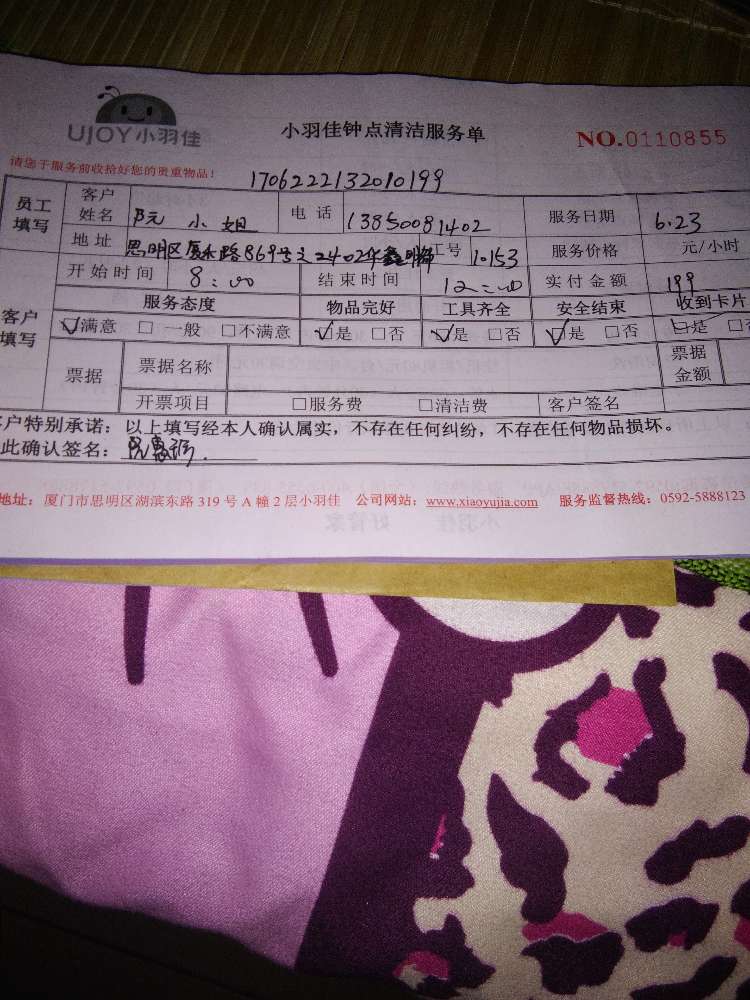 UJOY小羽佳
小羽佳钟点清洁服务单
NO.0110855
请您于服务前收拾好您的贵重物品!
1706222132010199
员工填写 客户姓名 阮小姐 电话 13850081402 服务日期 6.23
地址 思明区厦禾路869号之2402华鑫明 工号 10153 服务价格 元/小时
客户填写 开始时间 8:00 结束时间 12:00 实付金额 199
服务态度 物品完好 工具齐全 安全结束 收到卡片
☑满意 □一般 □不满意 ☑是 □否 ☑是 □否 ☑是 □否 ☑是 □
票据 票据名称 票据金额
开票项目 □服务费 □清洁费 客户签名
客户特别承诺:以上填写经本人确认属实,不存在任何纠纷,不存在任何物品损坏。
此确认签名:阮惠
地址:厦门市思明区湖滨东路319号A幢2层小羽佳 公司网站:www.xiaoyujia.com 服务监督热线:0592-5888123